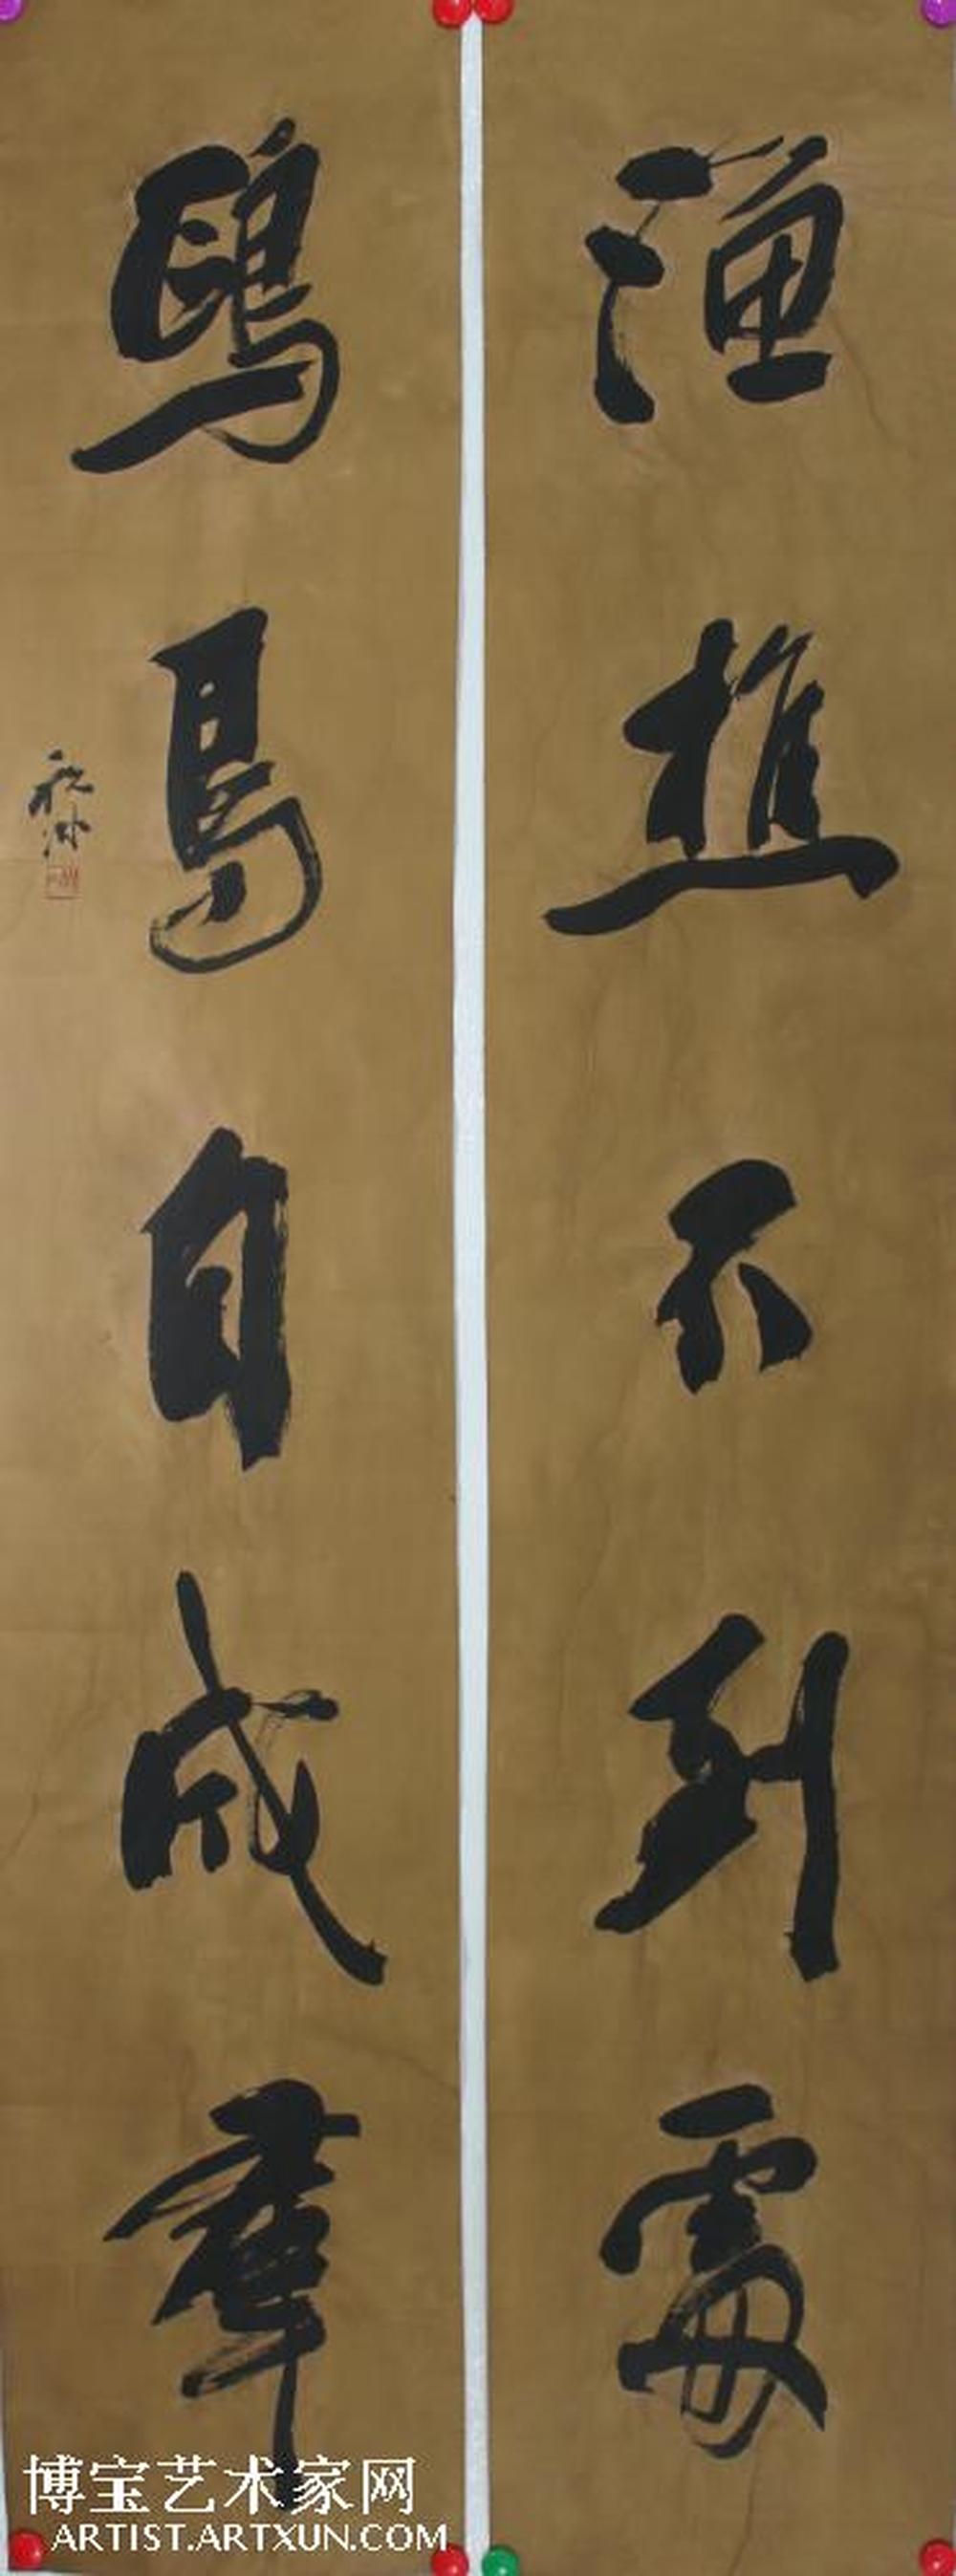 渔樵不到處
鷗鳥自成羣
博宝艺术家网
ARTIST.ARTXUN.COM